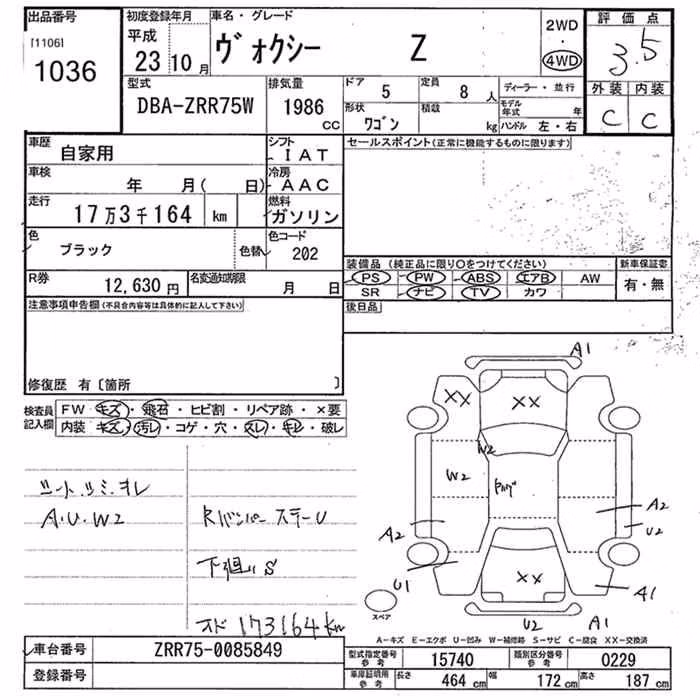 出品番号
[1106]
1036
初度登録年月
平成
23 10 月
車名・グレード
ヴォクシー Z
2WD
4WD
評価点
3.5
外装 内装
C C
型式
DBA-ZRR75W
排気量
1986
CC
ドア
5
定員
8 人
形状
ワゴン
積載
kg
ディーラー・並行
モデル
年式 年
ハンドル 左・右
車歴
自家用
シフト
IAT
車検
年 月( 日)
冷房
AAC
走行
17万3千164 km
燃料
ガソリン
色
ブラック
色替
色コード
202
R券
12,630 円
名変通知期限
月 日
セールスポイント(正常に機能するものに限ります)
装備品 (純正品に限り○をつけてください)
新車保証書
PS PW ABS エアB AW
SR ナビ TV カワ
有・無
後日品
注意事項申告欄(不具合内容等は具体的に記入して下さい)
修復歴 有〔箇所 〕
検査員
記入欄
FW キズ・飛石・ヒビ割・リペア跡・×要
内装 キズ・汚レ・コゲ・穴・スレ・キレ・破レ
A.U.W2
Rバンパー ステーU
下廻りS
オド 173164km
A1
XX
XX
W2
W2
A2
A2
U2
U1
XX
A1
U2
A1
スペア
A―キズ E―エクボ U―凹み W―補修跡 S―サビ C―腐食 XX―交換済
車台番号
ZRR75-0085849
登録番号
型式指定番号
参考
15740
類別区分番号
参考
0229
車庫証明用
参考
長さ
464 cm
幅
172 cm
高さ
187 cm